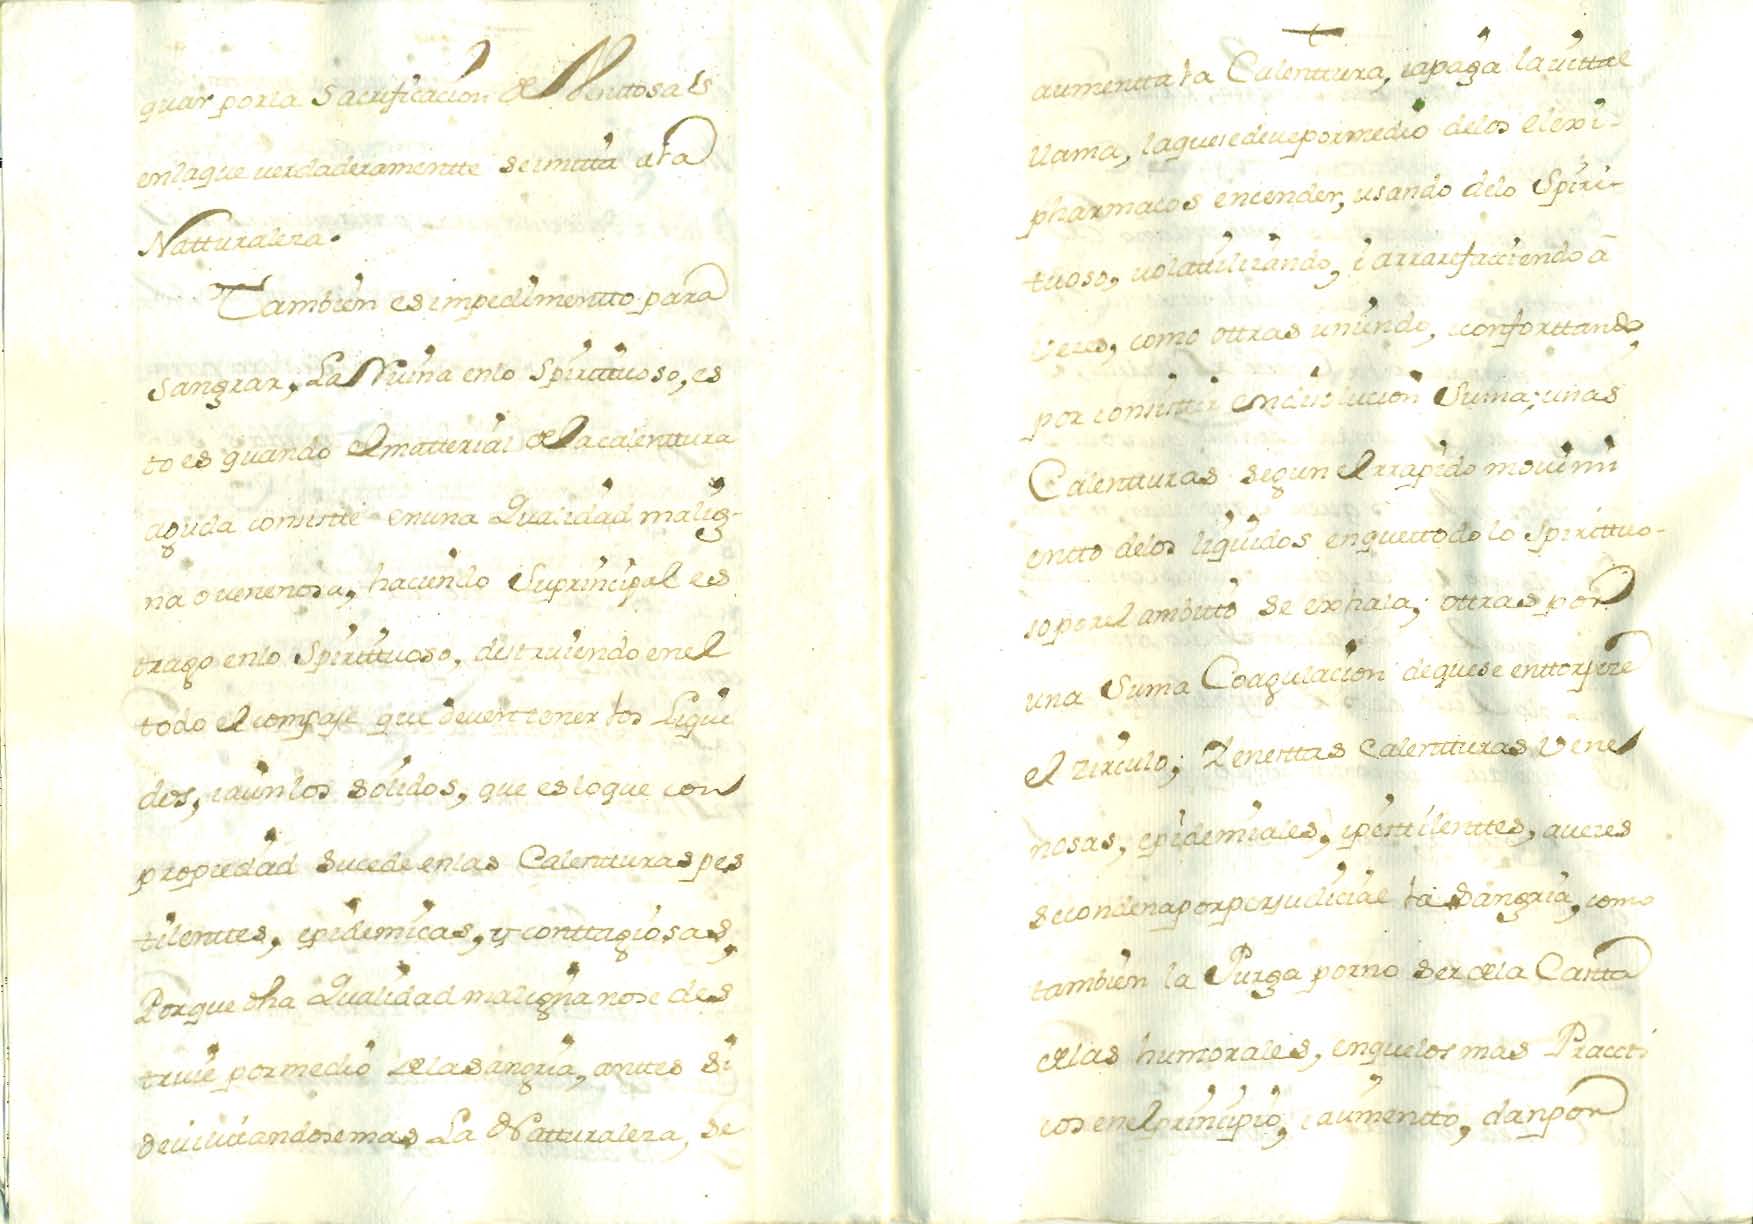 guar por la Sacrificacion de Venttosas
en la que verdaderamentte se imitta a la
Natturaleza.
Tambien es impedimentto para
Sangrar, La Ruina en lo Spirittuoso, es
to es quando el matterial de la calenttura
aguda consistte en una Qualidad malig-
na o venenosa, haciendo su principal es
trago en lo Spirittuoso, distruiendo en el
todo el compaje que deven tener los Liqui
dos, i aun los solidos, que es lo que con
propiedad sucede en las Calentturas pes
tilenttes, epidemicas, y conttagiosas,
Porque dha Qualidad maligna no se des
truie por medio de la sangria, anttes si
devilitandose mas La Natturaleza, se
aumentta la Calenttura, i apaga la vittal
llama, la que se deve por medio de los elexi-
pharmacos encender, usando de lo Spiri-
tuoso, volattilizando, i arrarefaciendo â
veces, como ottras uniendo, i conforttando,
por consisttir en disolucion Suma, unas
Calentturas segun el rrapido movimi
entto de los liquidos en que ttodo lo Spirittuo-
so por el ambitto se exhala; ottras por
una Suma Coagulacion de que se enttorpece
el zirculo; I en esttas calentturas vene
nosas, epidemiales, i pestilenttes, a veces
se condena por perjudicial la sangria, como
tambien la Purga por no ser de la Cantta
de las humorales, en que los mas Practti
cos en el principio, i aumentto, dan por